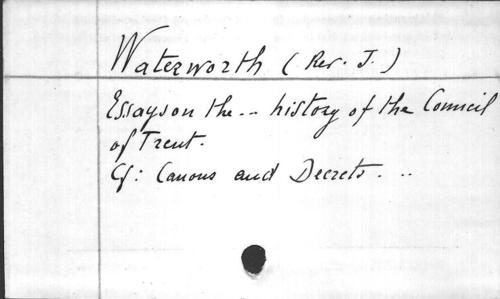 Waterworth (Rev. J.)
Essays on the .. history of the Council
of Trent.
Cf: Canons and Decrets. ..